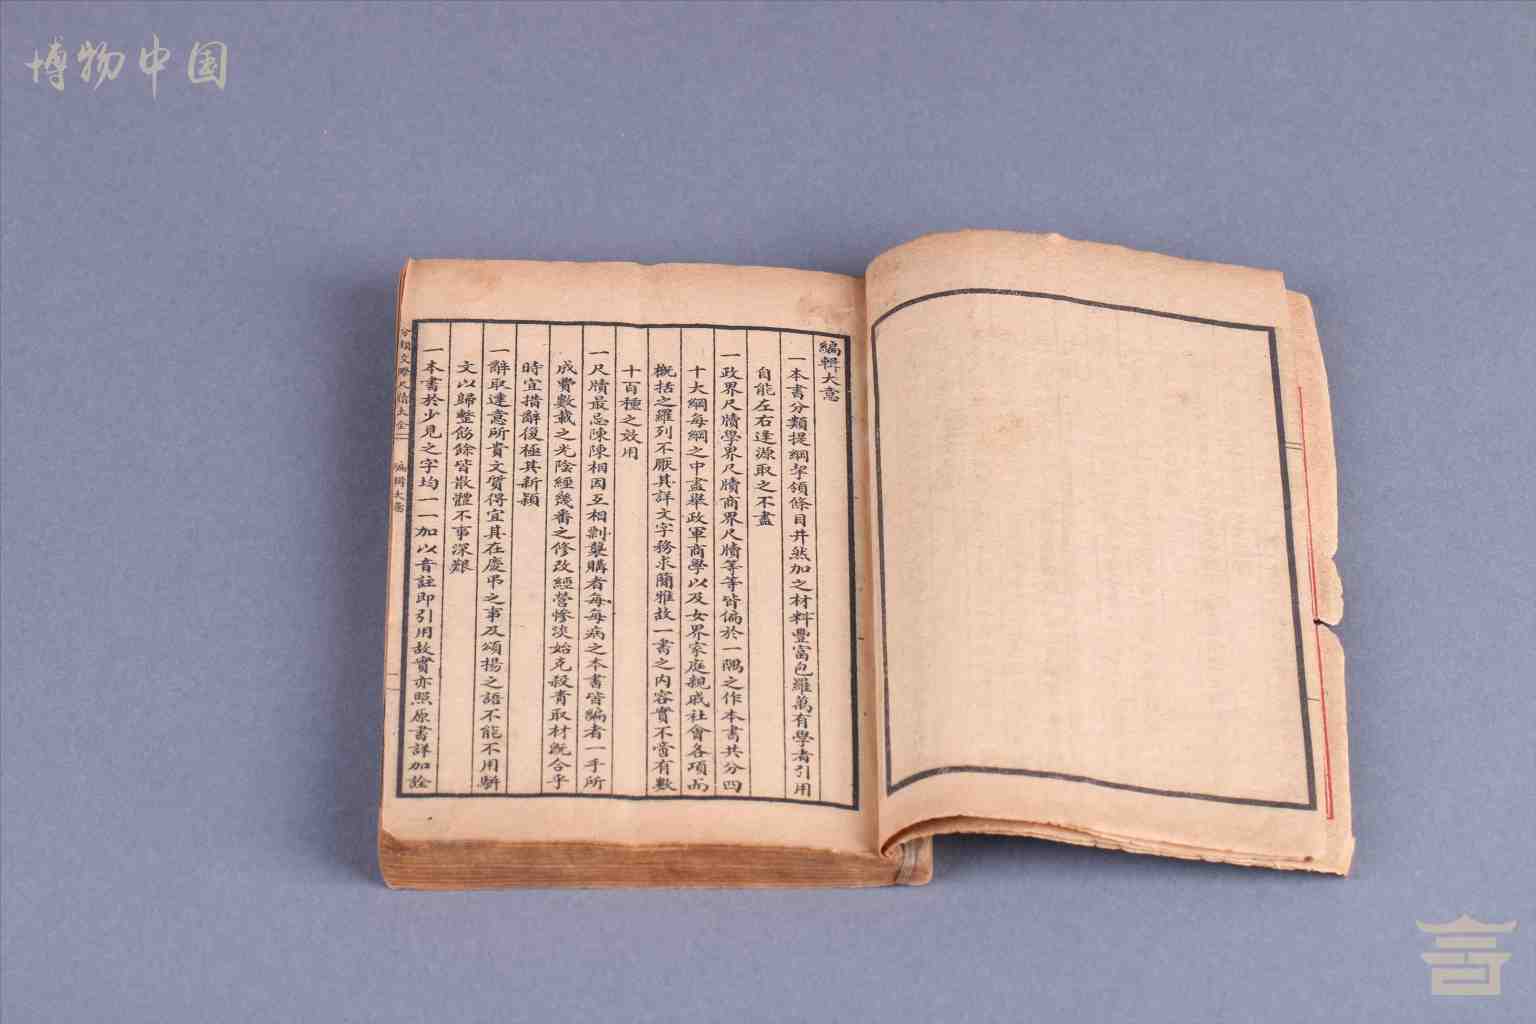 博物中国
編輯大意
一本書分類提綱挈領條目井然加之材料豐富包羅萬有學者引用
自能左右逢源取之不盡
一政界尺牘學界尺牘商界尺牘等等皆偏於一隅之作本書共分四
十大綱每綱之中盡舉政軍商學以及女界家庭親戚社會各項而
概括之羅列不厭其詳文字務求簡雅故一書之內容實不啻有數
十百種之效用
一尺牘最忌陳陳相因互相剽襲購者每每病之本書皆編者一手所
成費數載之光陰經幾番之修改經營慘淡始克殺青取材旣合乎
時宜措辭復極其新穎
一辭取達意所貴文質得宜其在慶弔之事及頌揚之語不能不用駢
文以歸整飭餘皆散體不事深艱
一本書於少見之字均一一加以音註即引用故實亦照原書詳加詮
分類文學尺牘大全 編輯大意 一